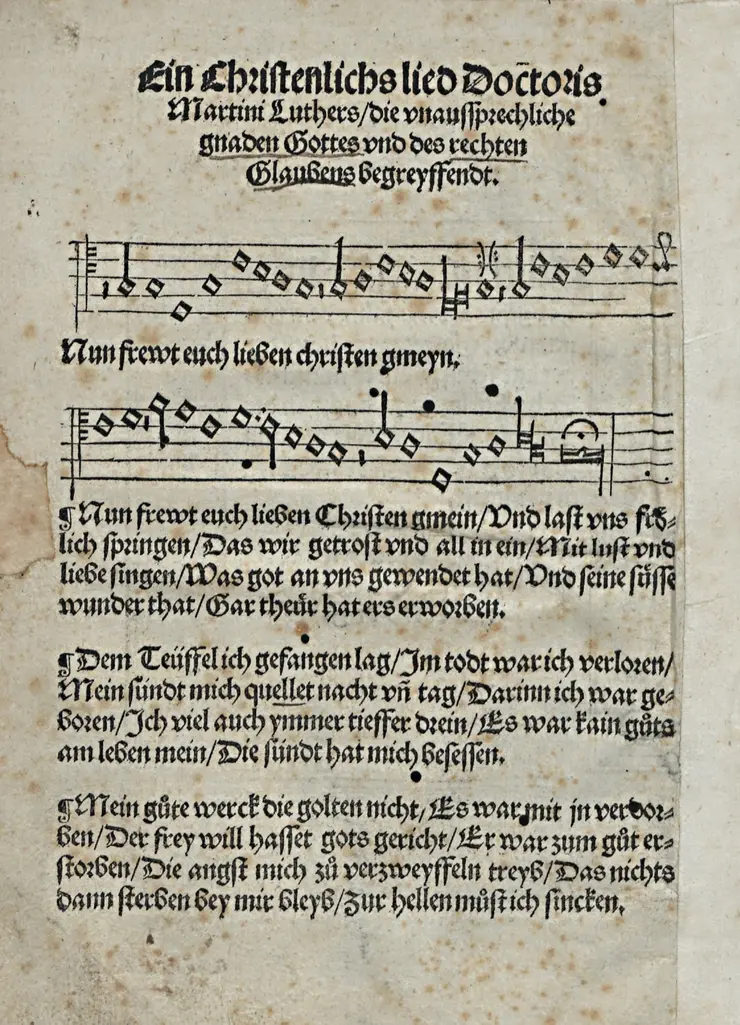 Ein Christenlichs lied Doctoris
Martini Luthers/die vnaussprechliche
gnaden Gottes vnd des rechten
Glaubens begreyffendt.
Nun frewt euch lieben christen gmeyn.
¶ Nun frewt euch lieben Christen gmein/Vnd last vns frö⸗
lich springen/Das wir getrost vnd all in ein/Mit lust vnd
liebe singen/Was got an vns gewendet hat/Vnd seine süsse
wunder that/Gar theür hat ers erworben.
¶ Dem Teüffel ich gefangen lag/Jm todt war ich verloren/
Mein sündt mich quellet nacht vn̄ tag/Darinn ich war ge⸗
boren/Jch viel auch ymmer tieffer drein/Es war kain gůts
am leben mein/Die sündt hat mich besessen.
¶ Mein gůte werck die golten nicht/Es war mit jn verdor⸗
ben/Der frey will hasset gots gericht/Er war zum gůt er⸗
storben/Die angst mich zů verzweyffeln treyb/Das nichts
dann sterben bey mir bleyb/Zur hellen můst ich sincken.